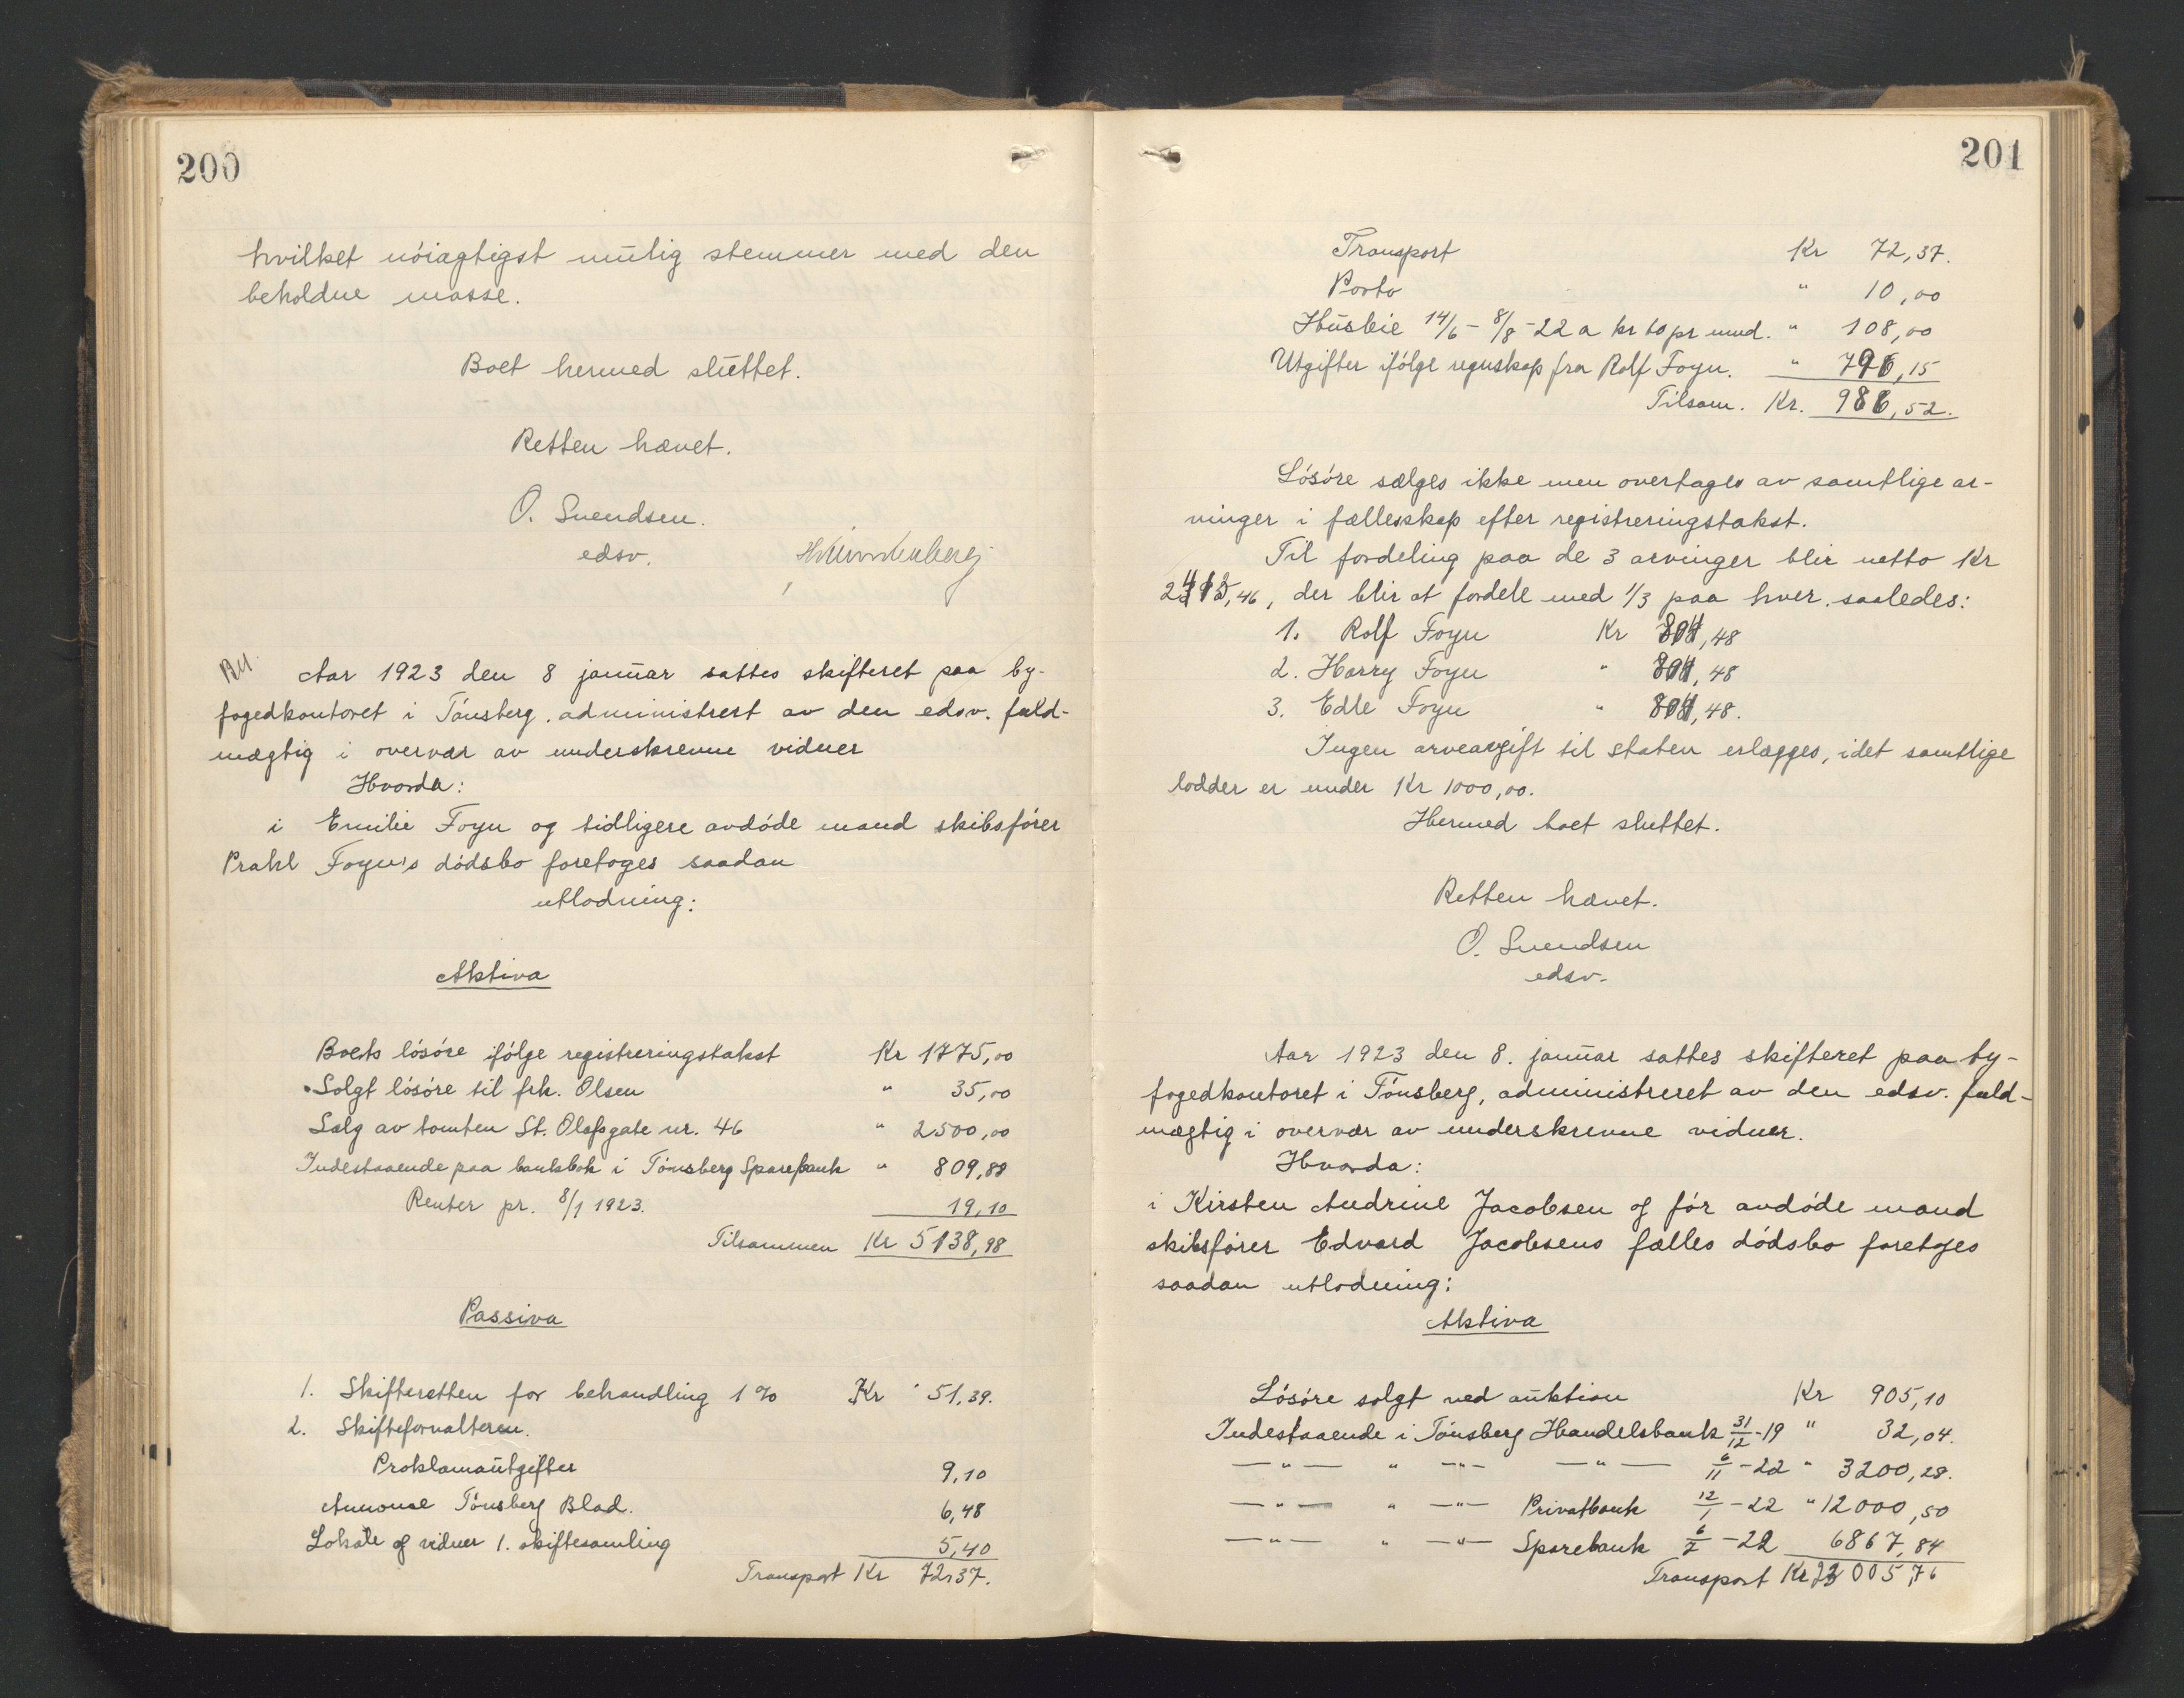 200
hvilket nöiagtigst mulig stemmer med den
beholdne masse.
Boet hermed sluttet.
Retten hævet.
O. Svendsen.
edsv.
Aar 1923 den 8 januar sattes skifteret paa by-
fogedkontoret i Tönsberg, administrert av den edsv. fuld-
mægtig i overvær av underskrevne vidner
Hvorda:
i Emilie Foyn og tidligere avdöde mand skibsförer
Prahl Foyn's dödsbo foretoges saadan
utlodning:
Aktiva
Boets lösöre ifölge registreringstakst Kr 1775,00
Solgt lösöre til frk. Olsen " 35,00
Salg av tomten St. Olafsgate nr. 46 " 2500,00
Indestaaende paa bankbok i Tönsberg Sparebank " 809,88
Renter pr. 8/1 1923. 19,10
Tilsammen Kr 5138,98
Passiva
1. Skifteretten for behandling 1% Kr 51,39.
2. Skifteforvalteren.
Proklamautgifter 9,10
Annonce Tönsberg Blad. 6,48
Lokale og vidner 1. skiftesamling 5,40
Transport Kr 72,37.
201
Transport Kr 72,37.
Porto " 10,00
Husleie 14/6 - 8/8 -22 a kr 60 pr mnd. " 108,00
Utgifter ifölge regnskap fra Rolf Foyn. " 796,15
Tilsam. Kr. 986,52.
Lösöre sælges ikke men overtages av samtlige ar-
vinger i fællesskap efter registreringstakst.
Til fordeling paa de 3 arvinger blir netto Kr
2413,46, der blir at fordele med 1/3 paa hver, saaledes:
1. Rolf Foyn Kr 804,48
2. Harry Foyn " 804,48
3. Edle Foyn " 804,48.
Ingen arveavgift til staten erlægges, idet samtlige
lodder er under Kr 1000,00.
Hermed boet sluttet.
Retten hævet.
O. Svendsen
edsv.
Aar 1923 den 8. januar sattes skifteret paa by-
fogedkontoret i Tönsberg, administreret av den edsv. fuld-
mægtig i overvær av underskrevne vidner.
Hvorda:
i Kirsten Andrine Jacobsen og för avdöde mand
skibsförer Edvard Jacobsens fælles dödsbo foretoges
saadan utlodning:
Aktiva
Lösöre solgt ved auktion Kr 905,10
Indestaaende i Tönsberg Handelsbank 31/12-19 " 32,04.
—"— " —"— —"— 6/11-22 " 3200,28.
—"— " —"— Privatbank 12/1-22 " 12000,50
—"— " —"— Sparebank 6/2-22 6867,84
Transport Kr 23005,76